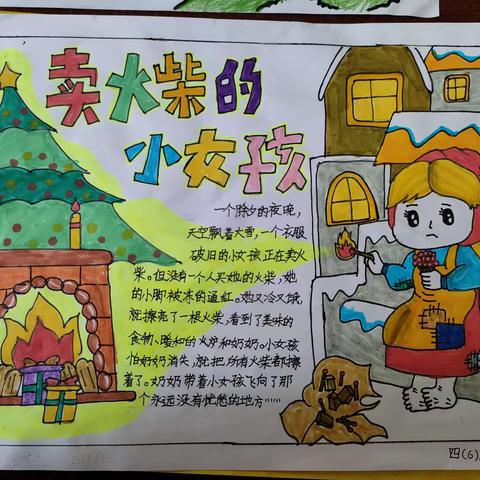 卖火柴的
小女孩
一个除夕的夜晚，
天空飘着大雪，一个衣服
破旧的小女孩正在卖火
柴。但没有一个人买她的火柴，她
的小脚被冻的通红。她又冷又饿，
就擦亮了一根火柴，看到了美味的
食物、暖和的火炉和奶奶。小女孩
怕奶奶消失，就把所有火柴都擦
着了。奶奶带着小女孩飞向了那
个永远没有忧愁的地方······
四(6)